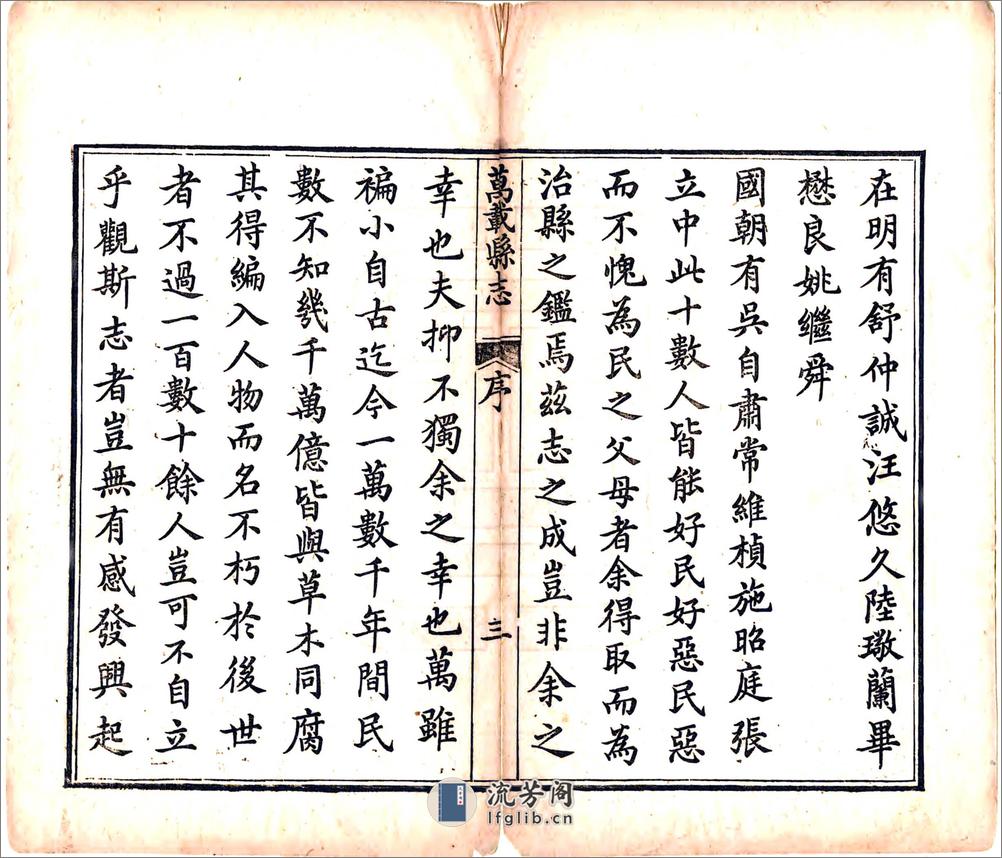 在明有舒仲誠汪悠久陸璥蘭畢
懋良姚繼舜
國朝有吳自肅常維楨施昭庭張
立中此十數人皆能好民好惡民惡
而不愧為民之父母者余得取而為
治縣之鑑焉茲志之成豈非余之
萬載縣志 序 三
幸也夫抑不獨余之幸也萬雖
褊小自古迄今一萬數千年間民
數不知幾千萬億皆與草木同腐
其得編入人物而名不朽於後世
者不過一百數十餘人豈可不自立
乎觀斯志者豈無有感發興起
流芳阁
lfglib.cn